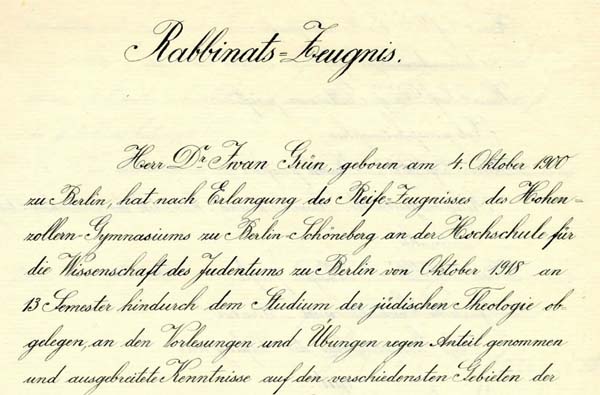 Rabbinats=Zeugnis.
Herr Dr Iwan Grün, geboren am 4. Oktober 1900
zu Berlin, hat nach Erlangung des Reife-Zeugnisses des Hohen=
zollern-Gymnasiums zu Berlin-Schöneberg an der Hochschule für
die Wissenschaft des Judentums zu Berlin von Oktober 1918 an
13 Semester hindurch dem Studium der jüdischen Theologie ob-
gelegen, an den Vorlesungen und Übungen regen Anteil genommen
und ausgebreitete Kenntnisse auf den verschiedensten Gebieten der